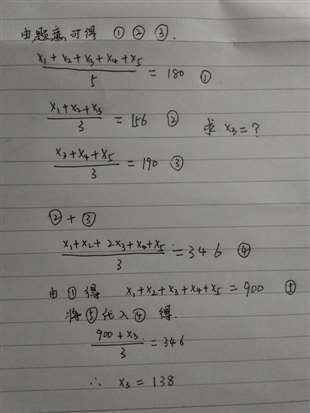 由题意可得 ① ② ③.
(x₁+x₂+x₃+x₄+x₅)/5 = 180 ①
(x₁+x₂+x₃)/3 = 156 ② 求 x₃=?
(x₃+x₄+x₅)/3 = 190 ③
②+③
(x₁+x₂+2x₃+x₄+x₅)/3 = 346 ④
由①得 x₁+x₂+x₃+x₄+x₅=900 ⑤
将⑤代入④得
(900+x₃)/3 = 346
∴ x₃ = 138